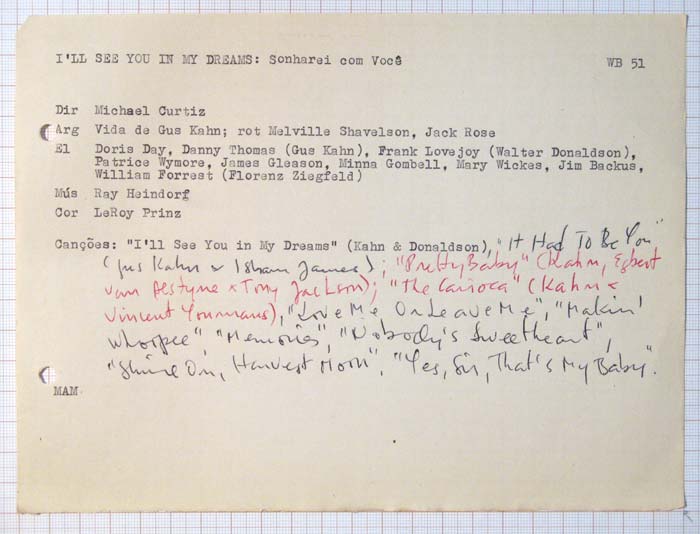 I'LL SEE YOU IN MY DREAMS: Sonharei com Você WB 51
Dir Michael Curtiz
Arg Vida de Gus Kahn; rot Melville Shavelson, Jack Rose
El Doris Day, Danny Thomas (Gus Kahn), Frank Lovejoy (Walter Donaldson),
Patrice Wymore, James Gleason, Minna Gombell, Mary Wickes, Jim Backus,
William Forrest (Florenz Ziegfeld)
Mús Ray Heindorf
Cor LeRoy Prinz
Canções: "I'll See You in My Dreams" (Kahn & Donaldson), "It Had To Be You"
(Gus Kahn & Isham James); "Pretty Baby" (Kahn, Egbert
van Alstyne & Tony Jackson); "The Carioca" (Kahn &
Vincent Youmans), "Love Me Or Leave Me", "Makin'
Whoopee", "Memories", "Nobody's Sweetheart",
"Shine On, Harvest Moon", "Yes, Sir, That's My Baby".
MAM